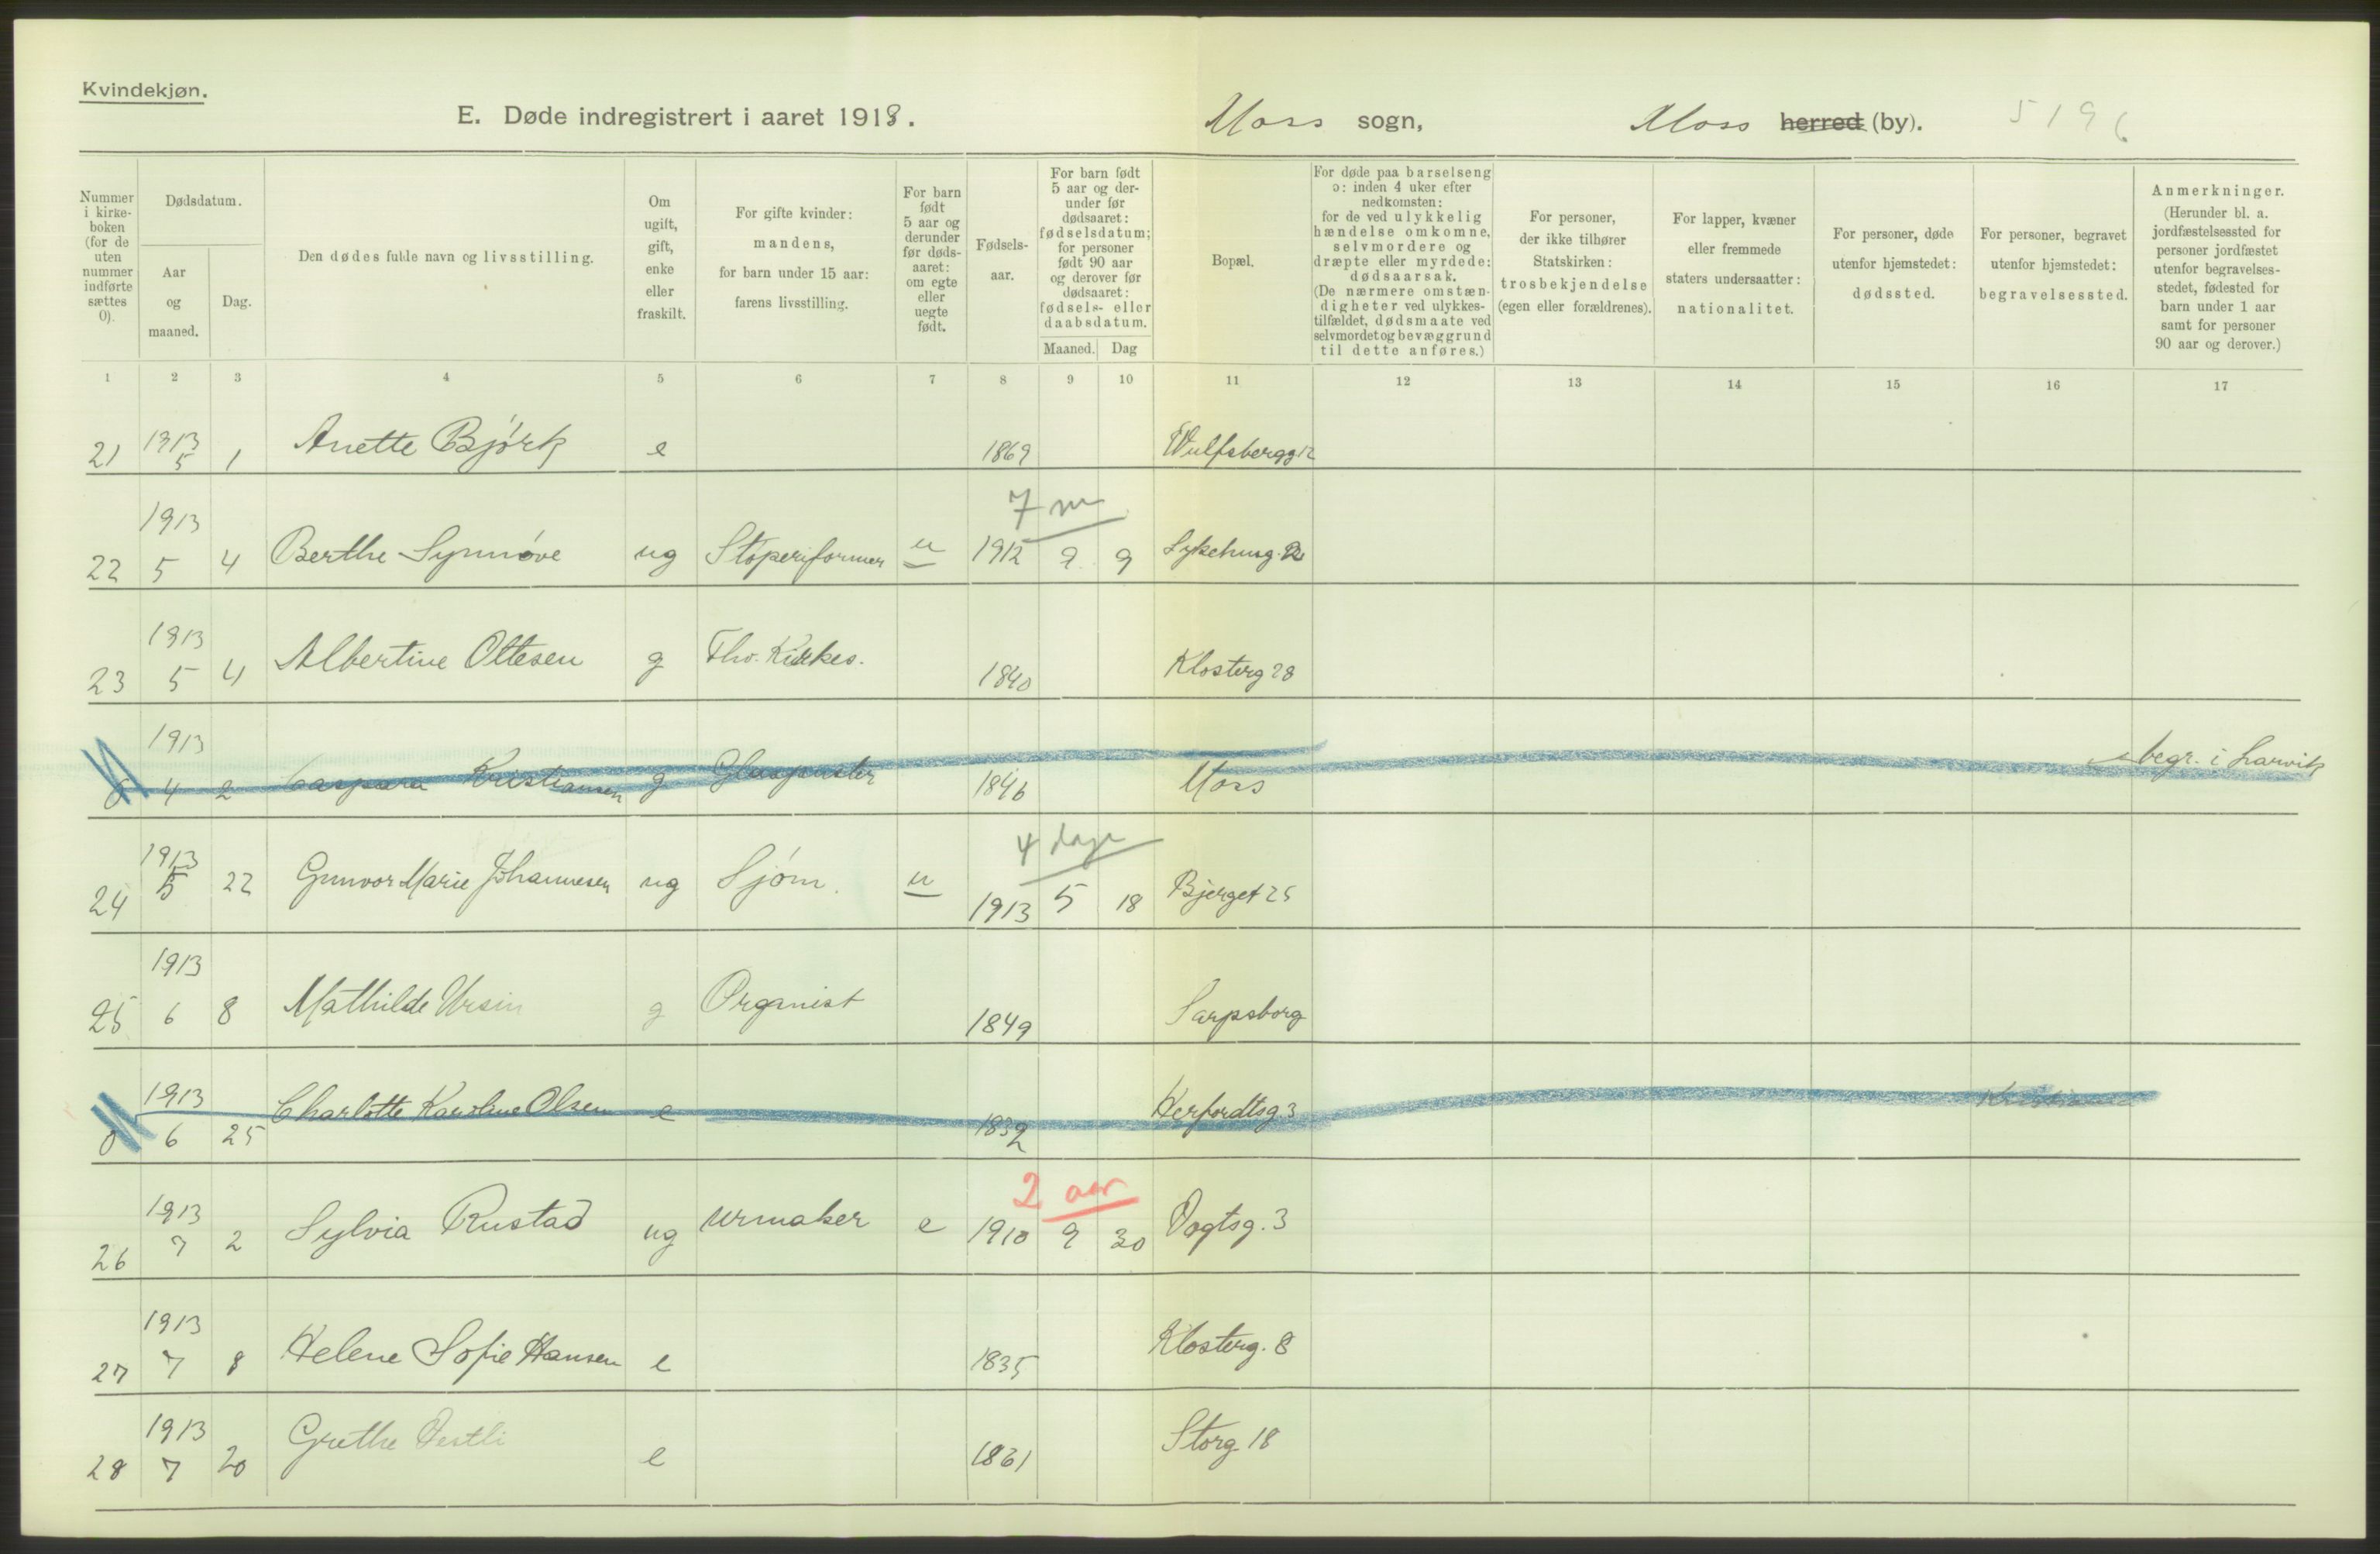 Kvindekjøn.
E. Døde indregistrert i aaret 1913. Moss sogn, Moss herred (by). 5196
Nummer i kirke-boken (for de uten nummer indførte sættes 0).
Dødsdatum.
Aar og maaned.
Dag.
Den dødes fulde navn og livsstilling.
Om ugift, gift, enke eller fraskilt.
For gifte kvinder: mandens, for barn under 15 aar: farens livsstilling.
For barn født 5 aar og derunder før døds-aaret: om egte eller uegte født.
Fødsels-aar.
For barn født 5 aar og der-under før dødsaaret: fødselsdatum; for personer født 90 aar og derover før dødsaaret: fødsels- eller daabsdatum.
Maaned. Dag
Bopæl.
For døde paa barselseng ɔ: inden 4 uker efter nedkomsten: for de ved ulykkelig hændelse omkomne, selvmordere og dræpte eller myrdede: dødsaarsak. (De nærmere omstæn-digheter ved ulykkes-tilfældet, dødsmaate ved selvmordet og bevæggrund til dette anføres.)
For personer, der ikke tilhører Statskirken: trosbekjendelse (egen eller forældrenes).
For lapper, kvæner eller fremmede staters undersaatter: nationalitet.
For personer, døde utenfor hjemstedet: dødssted.
For personer, begravet utenfor hjemstedet: begravelsessted.
Anmerkninger. (Herunder bl. a. jordfæstelsessted for personer jordfæstet utenfor begravelses-stedet, fødested for barn under 1 aar samt for personer 90 aar og derover.)
1 2 3 4 5 6 7 8 9 10 11 12 13 14 15 16 17
21 1913 5 1 Anette Björk e 1869 Wulfsbergg 12
7 m
22 1913 5 4 Berthe Synnøve ug Støperiformer u 1912 9 9 Sykehusg.
23 1913 5 4 Albertine Ottesen g Fhv. Kirkes. 1840 Klosterg 28
0 1913 4 2 Caspara Kristiansen g Glaspuster 1846 Moss begr. i Larvik
4 dage
24 1913 5 22 Gunvor Marie Johannesen ug Sjöm. u 1913 5 18 Bjerget 25
25 1913 6 8 Mathilde Ursin g Organist 1849 Sarpsborg
0 1913 6 25 Charlotte Karoline Olsen e 1832 Herfordtsg. 3 Kristiania
2 aar
26 1913 7 2 Sylvia Rustad ug urmaker e 1910 9 30 Vogtsg. 3
27 1913 7 8 Helene Sofie Hansen e 1835 Klosterg. 8
28 1913 7 20 Grethe Vestli e 1831 Storg 18